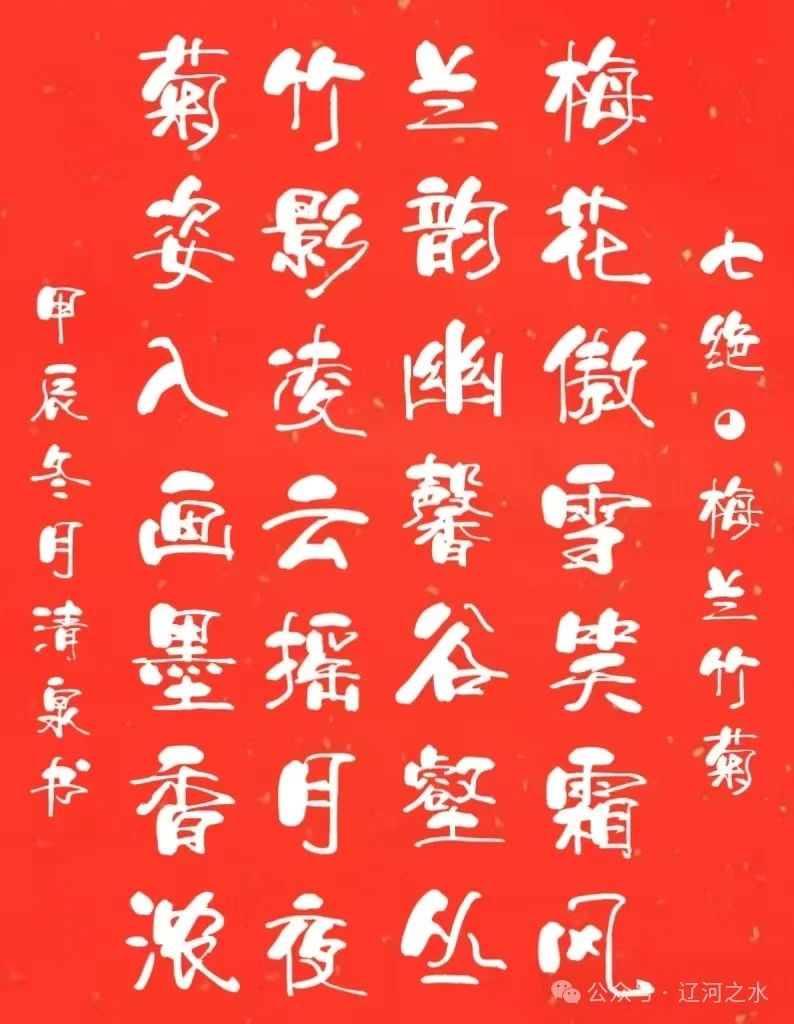 七绝·梅兰竹菊
梅花傲雪笑霜风
兰韵幽馨谷壑丛
竹影凌云摇月夜
菊姿入画墨香浓
甲辰冬月清泉书
公众号·辽河之水